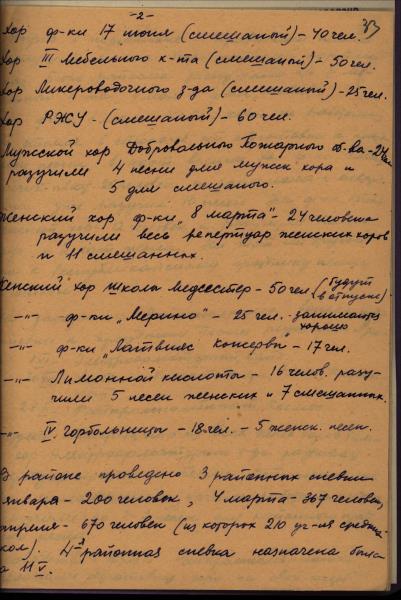 -2-
33
Хор ф-ки 17 июня (смешаный) - 40 чел.
Хор III мебельного к-та (смешаный) - 50 чел.
Хор Ликероводочного з-да (смешаный) - 25 чел.
Хор РЖУ - (смешаный) - 60 чел.
Мужской хор Добровольного Пожарного об-ва - 24 чел
разучили 4 песни для мужск хора и
5 для смешаного.
Женский хор ф-ки „8 марта" - 24 человека
разучили весь репертуар женских хоров
и 11 смешанных.
Женский хор школы медсестер - 50 чел (будут
в отпуске)
-"- ф-ки „Мерино" - 25 чел. занимаются
хорошо
-"- ф-ки „Латвияс консервы" - 17 чел.
-"- Лимонной кислоты - 16 челов. разу-
чили 5 песен женских и 7 смешанных.
-"- IV горбольницы - 18 чел. - 5 женск. песен.
В районе проведено 3 районных спевки
января - 200 человек, 4 марта - 367 человек,
апреля - 670 человек (из которых 210 уч-ся средн.
школ). 4-я районная спевка назначена была
на 11 V.